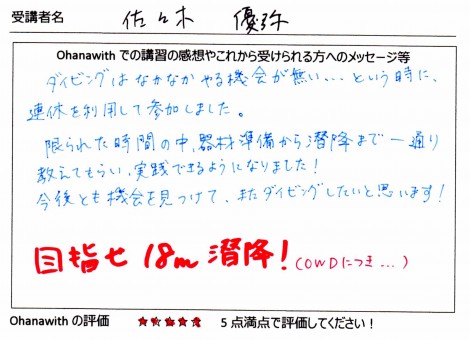 受講者名 佐々木 優弥
Ohanawith での講習の感想やこれから受けられる方へのメッセージ等
ダイビングはなかなかやる機会が無い... という時に、
連休を利用して参加しました。
限られた時間の中、器材準備から潜降まで一通り
教えてもらい、実践できるようになりました!
今後とも機会を見つけて、またダイビングしたいと思います!
目指せ 18m 潜降! (OWDにつき...)
Ohanawith の評価 ★★★★★ 5 点満点で評価してください!